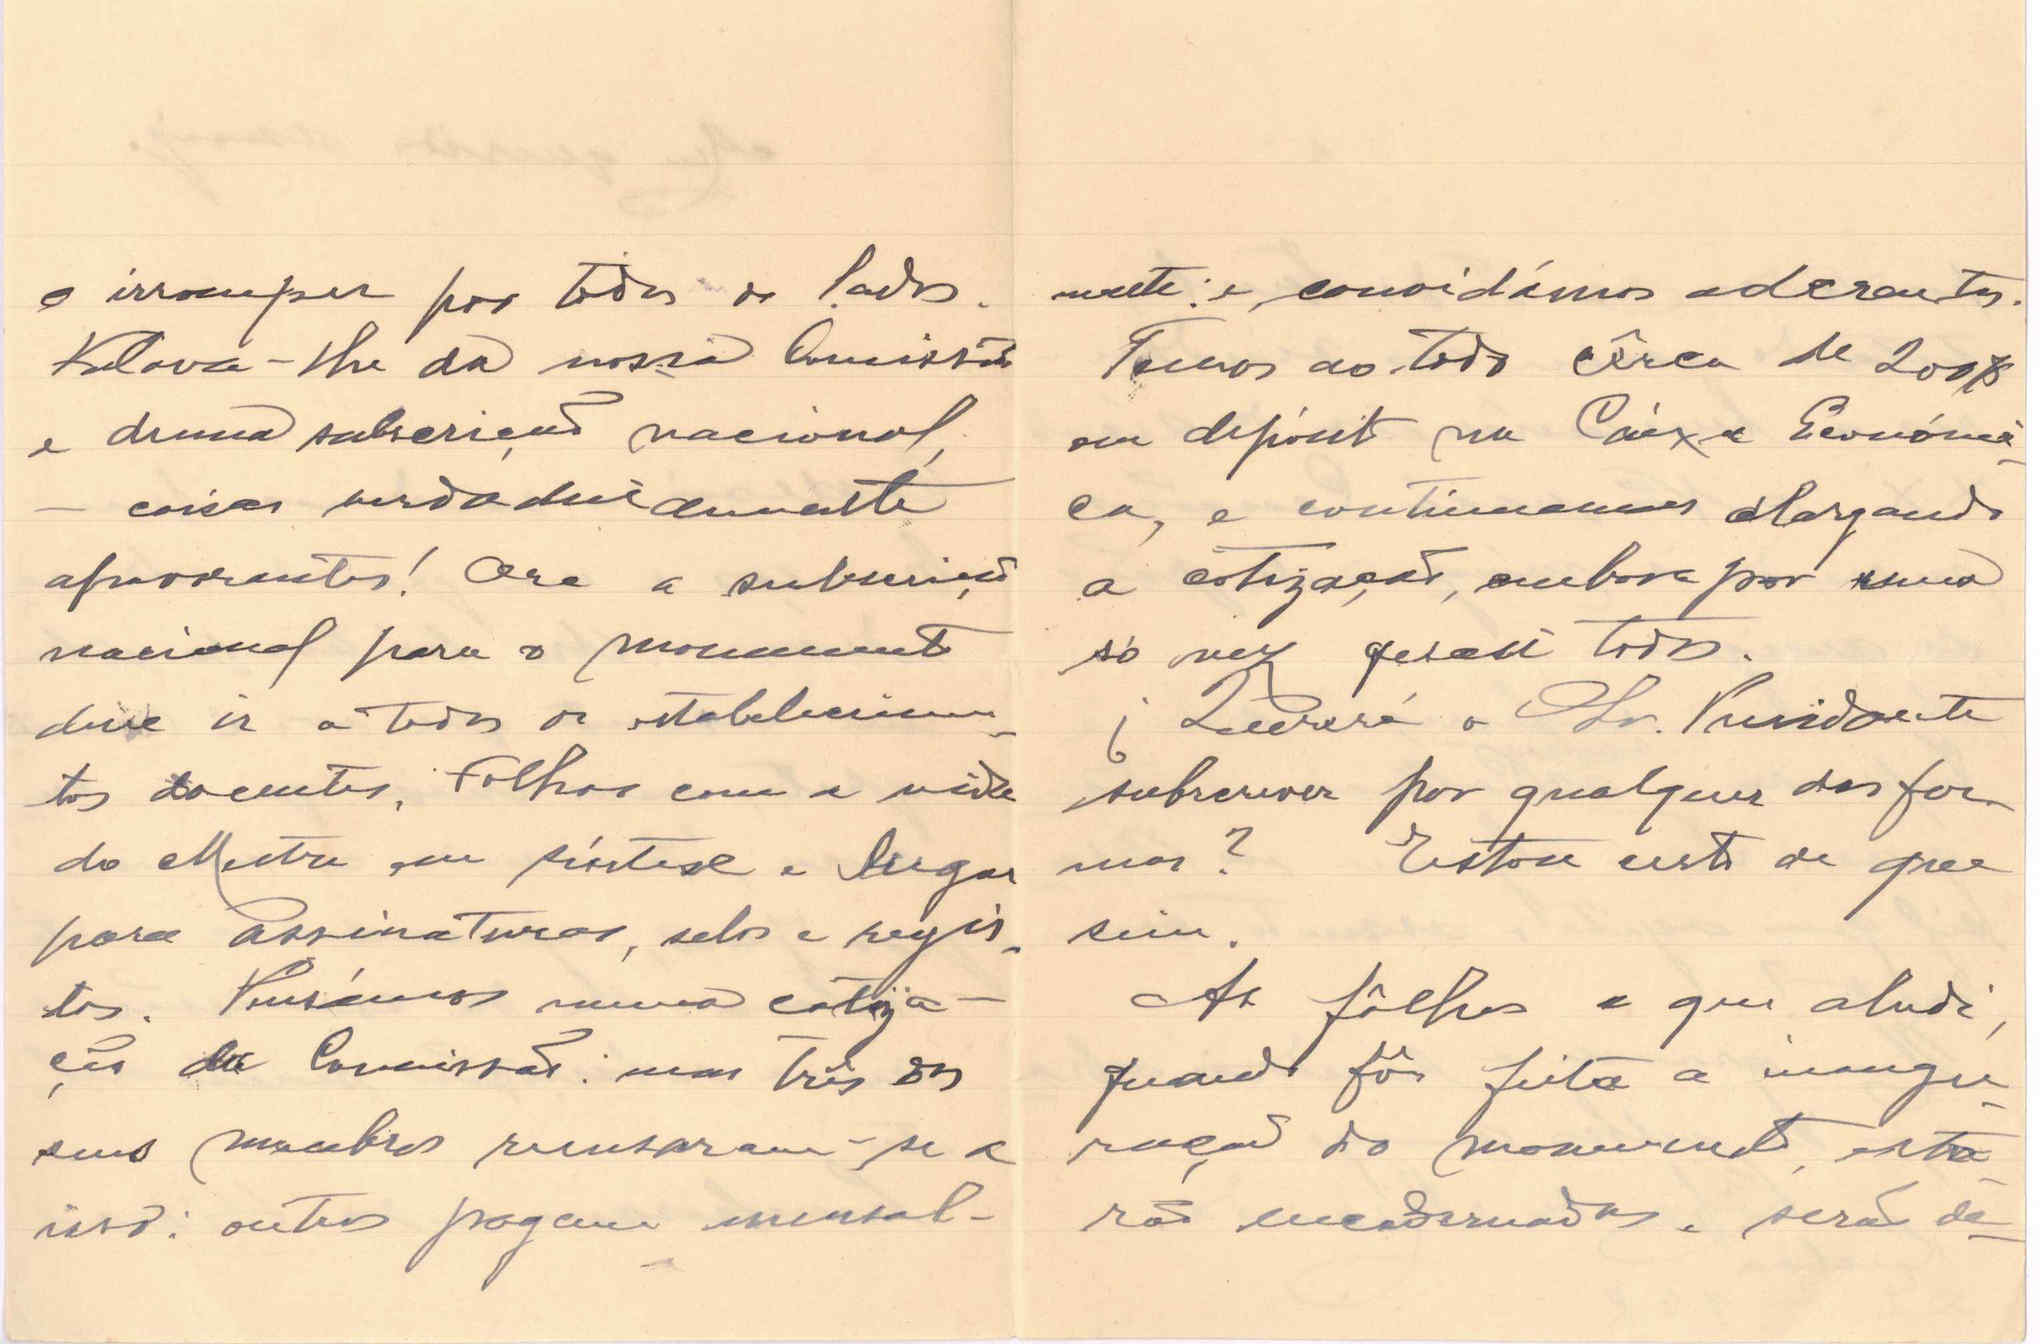 a irromper por todos os lados.
Falava-lhe da nossa Comissão
e duma subscrição nacional,
— coisas verdadeiramente
apavorantes! Ora a subscrição
nacional para o monumento
deve ir a todos os estabelecimen-
tos docentes. Folhas com a vida
do Mestre em síntese e lugar
para assinaturas, selos e regis-
tos. Pensámos numa cotiza-
ção da Comissão: mas três dos
seus membros recusaram-se a
isso: outros pagam mensal-
mente: e, convidámos aderentes.
Temos ao todo cêrca de 200$
em depósito na Caixa Económi-
ca, e continuamos alargando
a cotização, embora por uma
só vez quási todos.
¿ Quererá o Sr. Presidente
subscrever por qualquer das for-
mas? Estou certo de que
sim.
As fôlhas a que aludi,
quando fôr feita a inaugu-
ração do monumento, esta-
rão encadernadas e serão de-